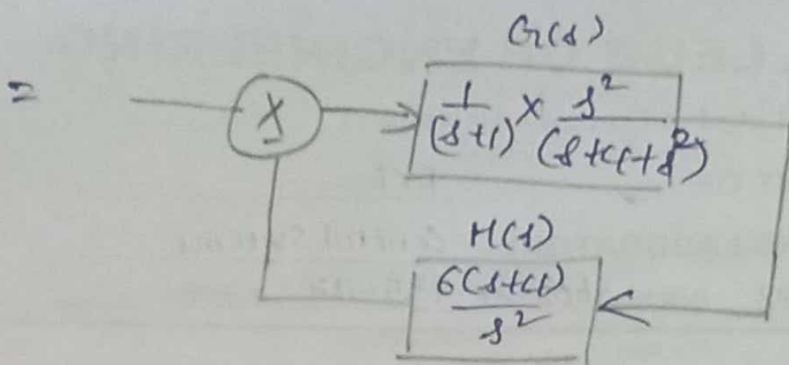 G(s)
=
X
1/(s+1) × s²/(s+4+s²)
H(s)
6(s+4)/s²